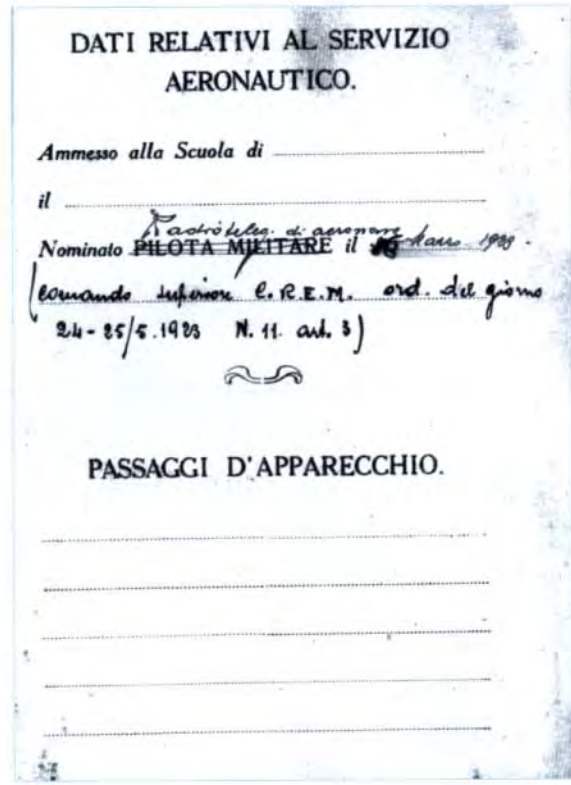 DATI RELATIVI AL SERVIZIO
AERONAUTICO.
Ammesso alla Scuola di
il
di aeronave
Nominato PILOTA MILITARE il
Comando superiore C.R.E.M. ord. del giorno
24-25/5.1923 N. 11. art. 3)
PASSAGGI D'APPARECCHIO.